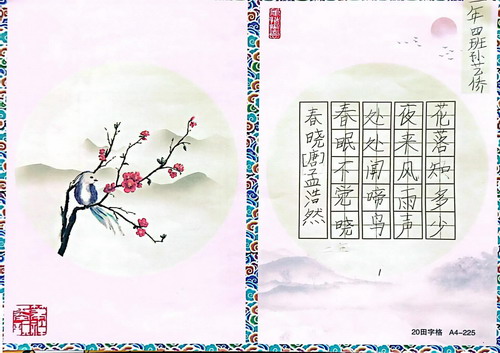 年四班孙艺侨
春晓[唐]孟浩然
春眠不觉晓
处处闻啼鸟
夜来风雨声
花落知多少
20田字格 A4-225